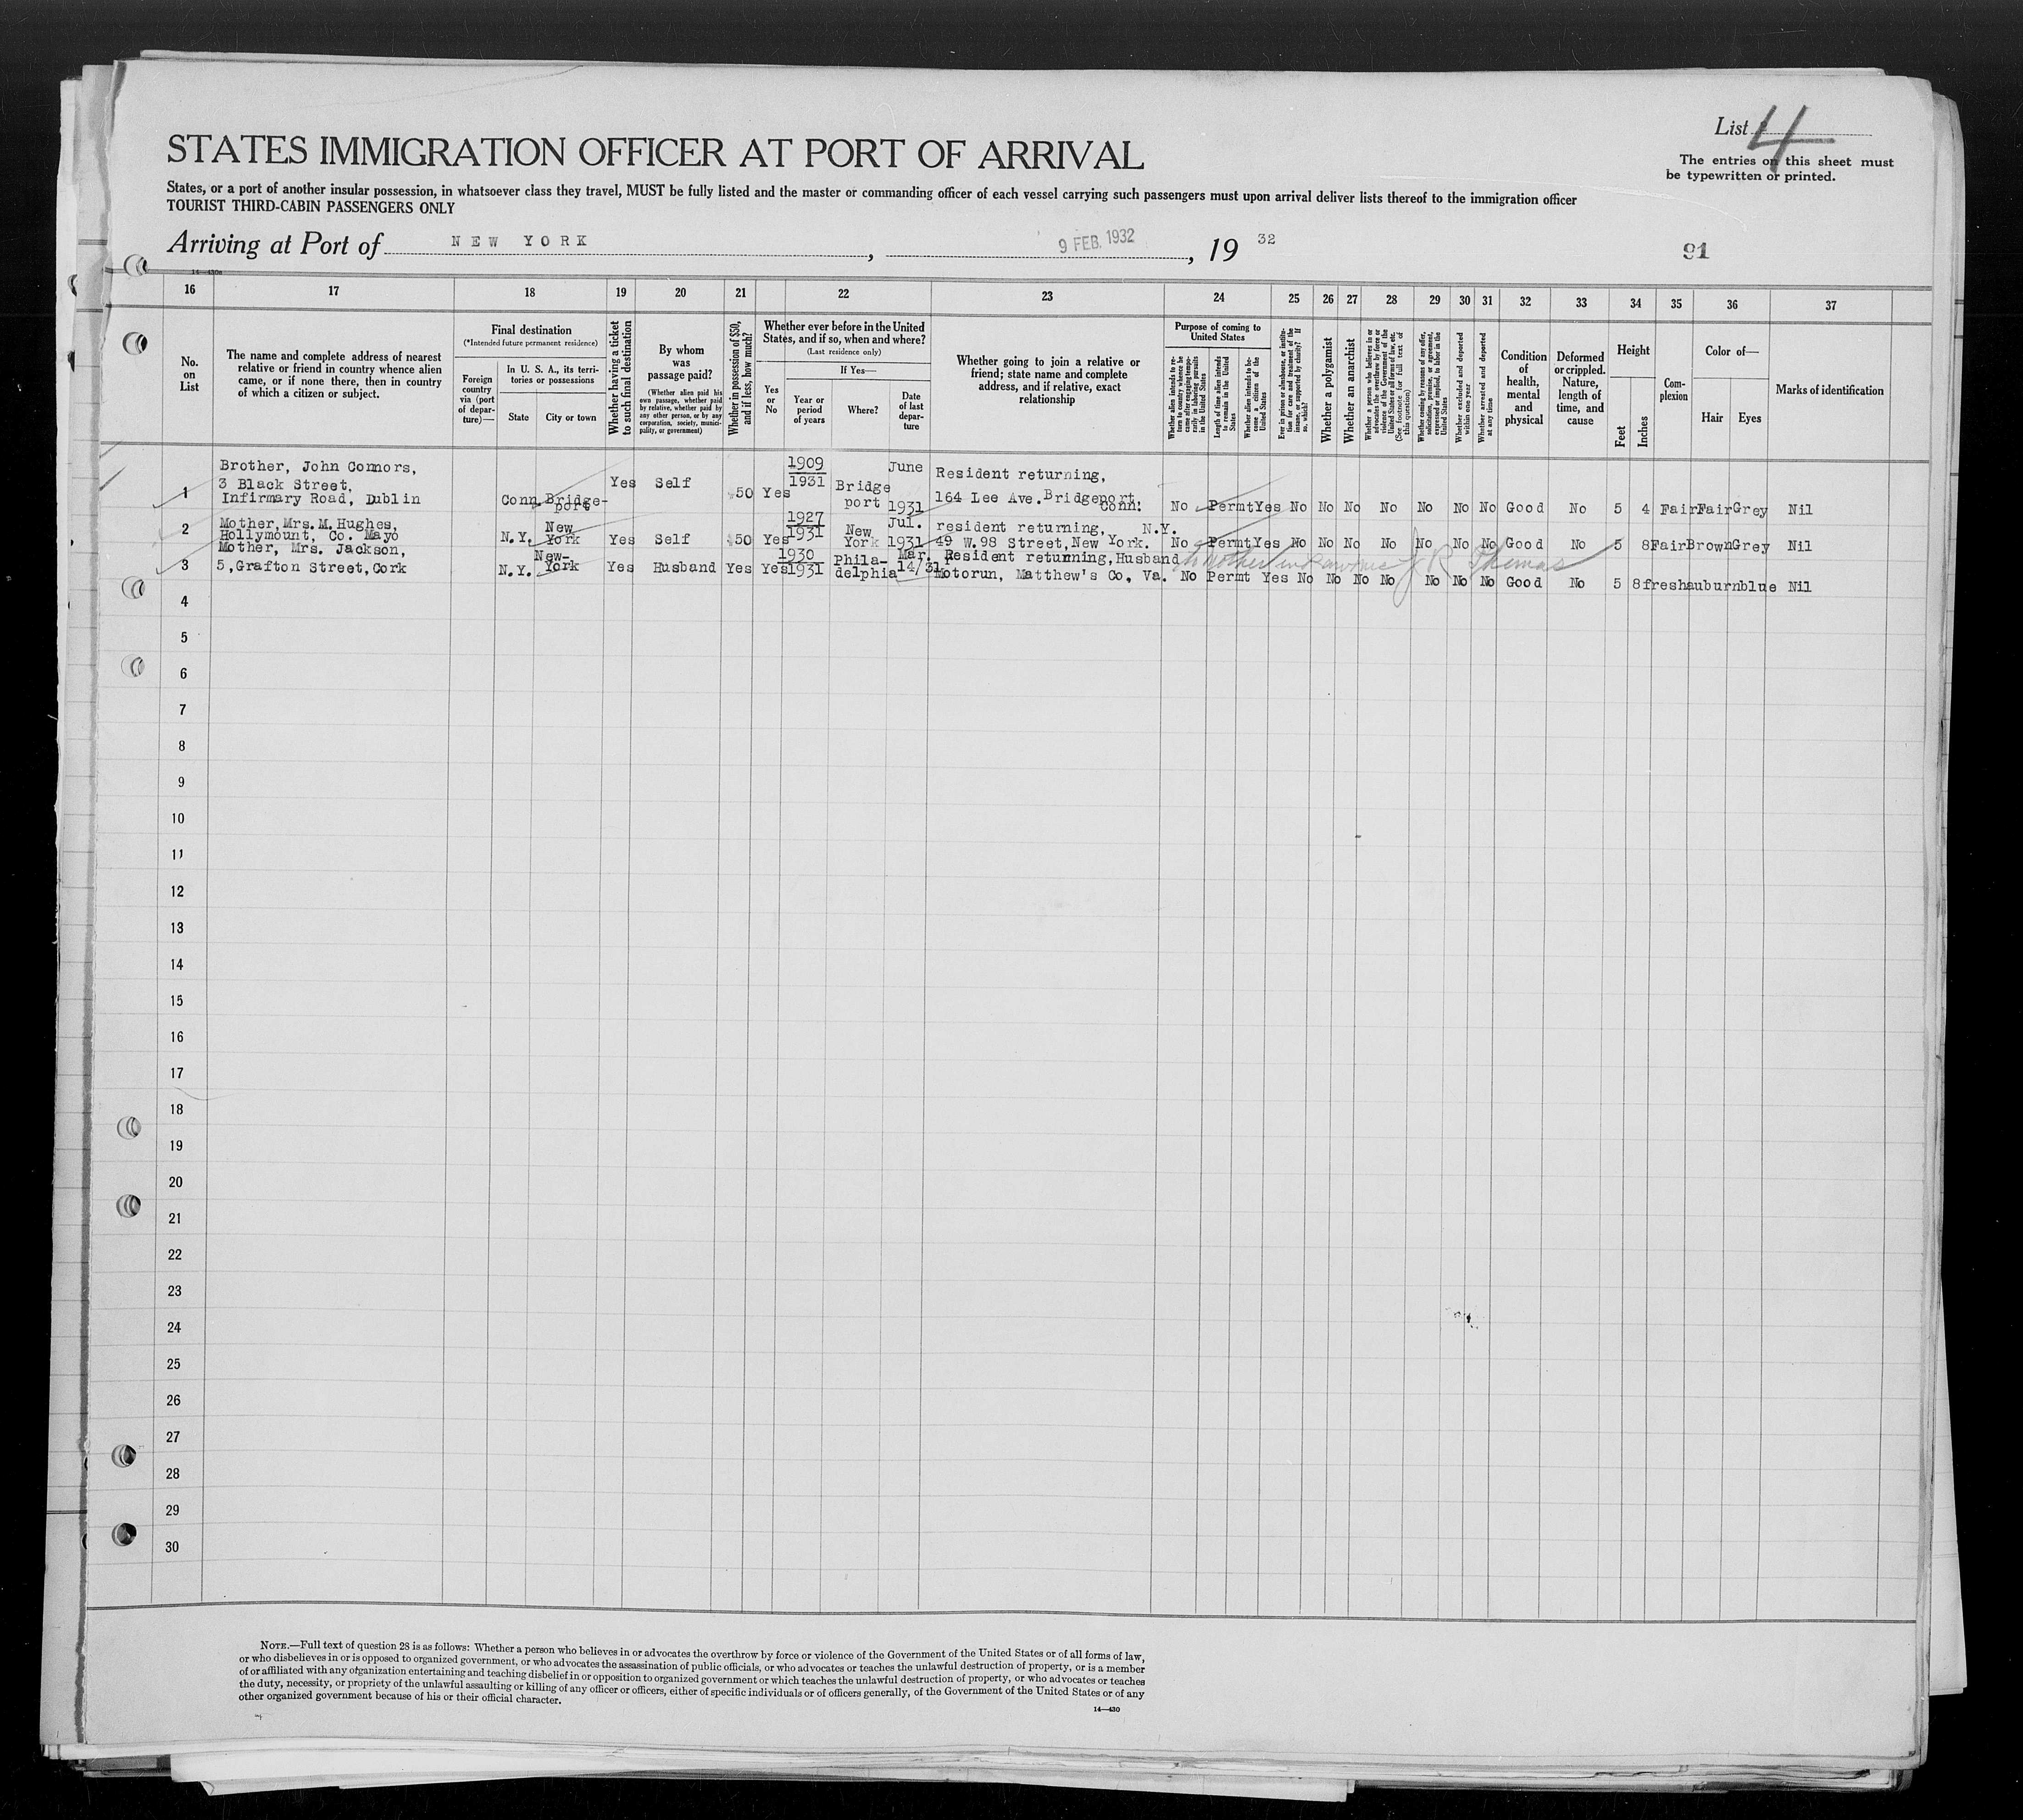 List 4
The entries on this sheet must
be typewritten or printed.
STATES IMMIGRATION OFFICER AT PORT OF ARRIVAL
States, or a port of another insular possession, in whatsoever class they travel, MUST be fully listed and the master or commanding officer of each vessel carrying such passengers must upon arrival deliver lists thereof to the immigration officer
TOURIST THIRD-CABIN PASSENGERS ONLY
Arriving at Port of NEW YORK, 9 FEB. 1932, 19 32
91
14—430a
16 17 18 19 20 21 22 23 24 25 26 27 28 29 30 31 32 33 34 35 36 37
No.
on
List
The name and complete address of nearest
relative or friend in country whence alien
came, or if none there, then in country
of which a citizen or subject.
Final destination
(*Intended future permanent residence)
Foreign
country
via (port
of depar-
ture)—
In U. S. A., its terri-
tories or possessions
State
City or town
Whether having a ticket
to such final destination
By whom
was
passage paid?
(Whether alien paid his
own passage, whether paid
by relative, whether paid by
any other person, or by any
corporation, society, munici-
pality, or government)
Whether in possession of $50,
and if less, how much?
Whether ever before in the United
States, and if so, when and where?
(Last residence only)
Yes
or
No
If Yes—
Year or
period
of years
Where?
Date
of last
depar-
ture
Whether going to join a relative or
friend; state name and complete
address, and if relative, exact
relationship
Purpose of coming to
United States
Whether alien intends to re-
turn to country whence he
came after engaging tempo-
rarily in laboring pursuits
in the United States
Length of time alien intends
to remain in the United
States
Whether alien intends to be-
come a citizen of the
United States
Ever in prison or almshouse, or institu-
tion for care and treatment of the
insane, or supported by charity? If
so, which?
Whether a polygamist
Whether an anarchist
Whether a person who believes in or
advocates the overthrow by force or
violence of the Government of the
United States or all forms of law, etc.
(See footnote for full text of
this question)
Whether coming by reasons of any offer,
solicitation, promise, or agreement,
expressed or implied, to labor in the
United States
Whether excluded and deported
within one year
Whether arrested and deported
at any time
Condition
of
health,
mental
and
physical
Deformed
or crippled.
Nature,
length of
time, and
cause
Height
Feet
Inches
Com-
plexion
Color of—
Hair
Eyes
Marks of identification
1
Brother, John Connors,
3 Black Street,
Infirmary Road, Dublin
Conn. Bridge-
port
Yes Self 50 Yes
1909
1931
Bridge
port
June
1931
Resident returning,
164 Lee Ave. Bridgeport
Conn.
No Permt Yes No No No No No No No Good No 5 4 Fair Fair Grey Nil
2
Mother, Mrs. M. Hughes,
Hollymount, Co. Mayo
N.Y. New
York
Yes Self 50 Yes
1927
1931
New
York
Jul.
1931
resident returning, N.Y.
49 W. 98 Street, New York.
No Permt Yes No No No No No No No Good No 5 8 Fair Brown Grey Nil
3
Mother, Mrs. Jackson,
5, Grafton Street, Cork
N.Y. New-
York
Yes Husband Yes Yes
1930
1931
Phila-
delphia
Mar.
14/31
Resident returning, Husband
Motorun, Matthew's Co, Va.
J R Thomas
No Permt Yes No No No No No No No Good No 5 8 fresh auburn blue Nil
4
5
6
7
8
9
10
11
12
13
14
15
16
17
18
19
20
21
22
23
24
25
26
27
28
29
30
NOTE.—Full text of question 28 is as follows: Whether a person who believes in or advocates the overthrow by force or violence of the Government of the United States or of all forms of law,
or who disbelieves in or is opposed to organized government, or who advocates the assassination of public officials, or who advocates or teaches the unlawful destruction of property, or is a member
of or affiliated with any organization entertaining and teaching disbelief in or opposition to organized government or which teaches the unlawful destruction of property, or who advocates or teaches
the duty, necessity, or propriety of the unlawful assaulting or killing of any officer or officers, either of specific individuals or of officers generally, of the Government of the United States or of any
other organized government because of his or their official character.
14—430